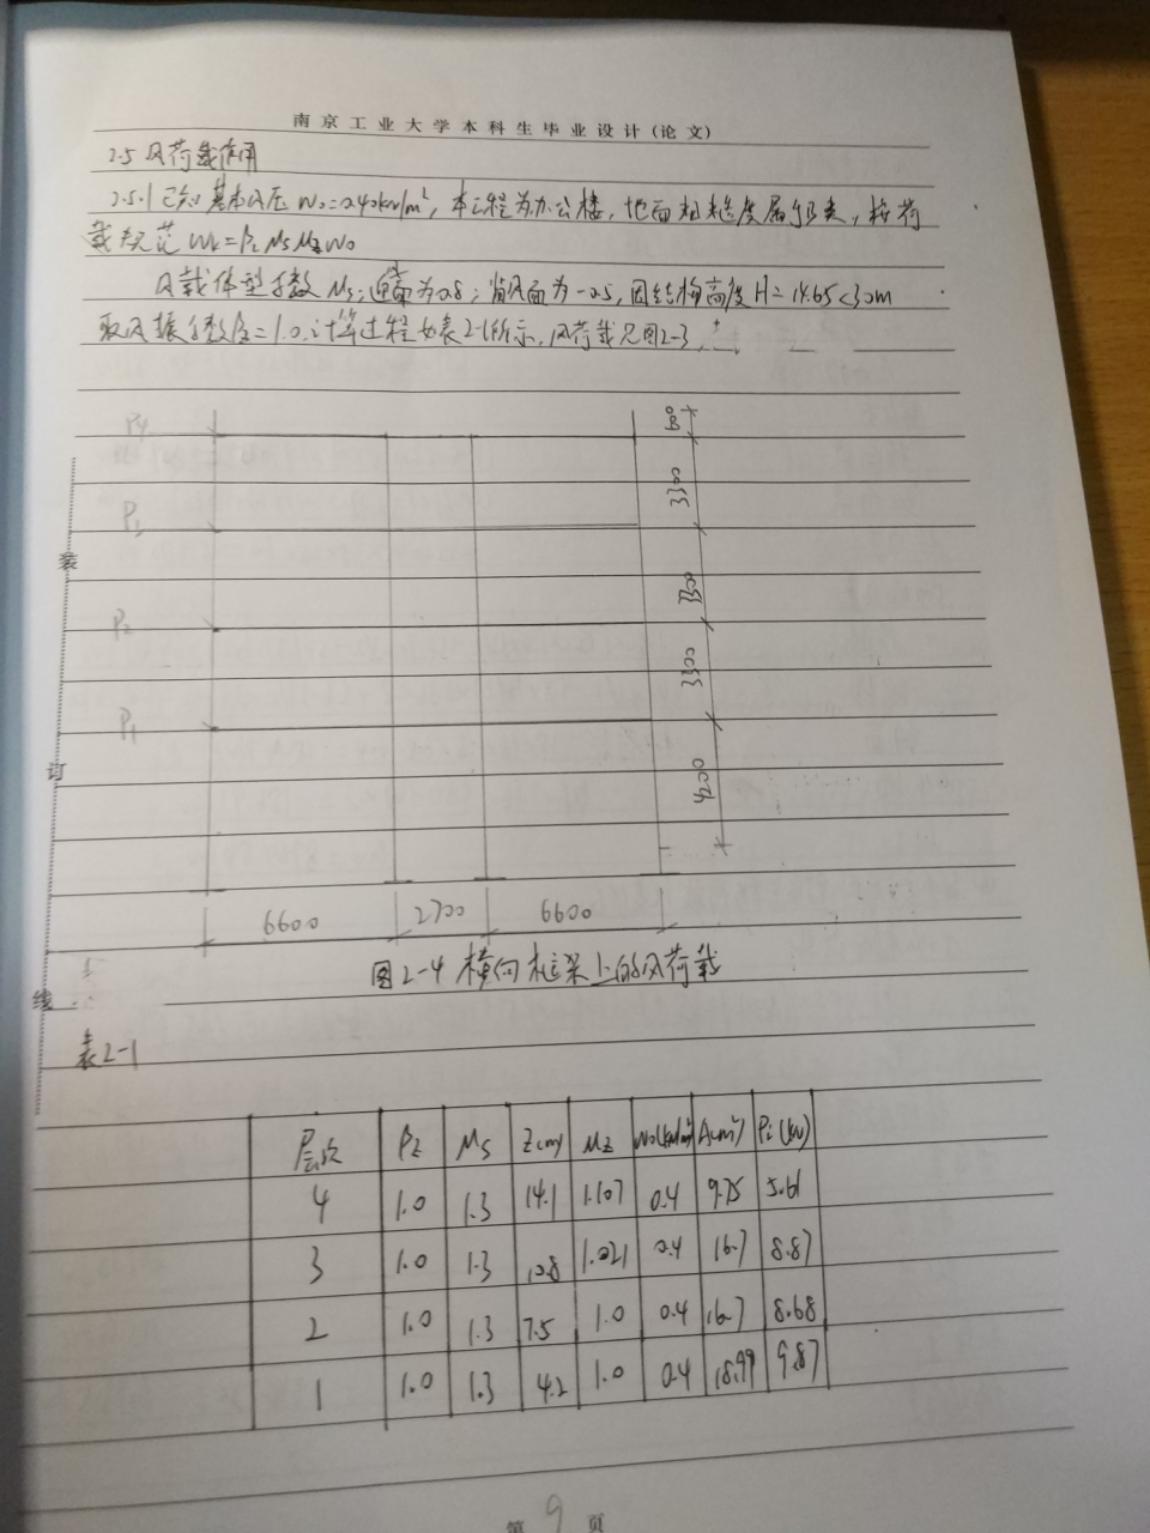 南京工业大学本科生毕业设计(论文)
2.5 风荷载作用
2.5.1 已知基本风压 W0=0.40kN/m², 本工程为办公楼, 地面粗糙度属于B类, 按荷
载规范 Wk=βzμsμzW0
风载体型系数 μs: 迎风面为0.8; 背风面为-0.5, 因结构高度 H=14.65<30m
取风振系数βz=1.0, 计算过程如表2-1所示, 风荷载见图2-3.
P4
3300
P3
装
3300
P2
3300
P1
订
4200
6600 2700 6600
图2-4 横向框架上的风荷载
线
表2-1
层次 βz μs Z(m) μz W0(kN/m²) A(m²) Pi(kN)
4 1.0 1.3 14.1 1.107 0.4 9.75 5.61
3 1.0 1.3 10.8 1.021 0.4 16.7 8.87
2 1.0 1.3 7.5 1.0 0.4 16.7 8.68
1 1.0 1.3 4.2 1.0 0.4 18.99 9.87
第 9 页